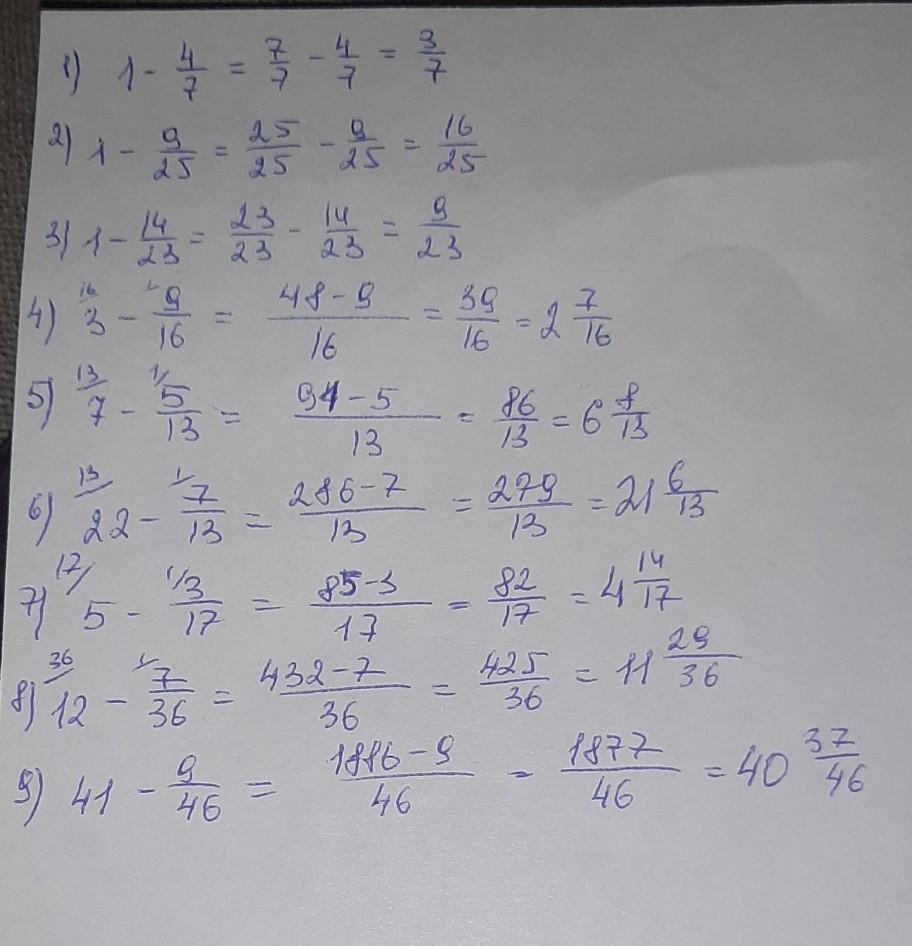 1) 1 - 4/7 = 7/7 - 4/7 = 3/7
2) 1 - 9/25 = 25/25 - 9/25 = 16/25
3) 1 - 14/23 = 23/23 - 14/23 = 9/23
4) 16/ 3 - 1/ 9/16 = (48-9)/16 = 39/16 = 2 7/16
5) 13/ 7 - 1/ 5/13 = (91-5)/13 = 86/13 = 6 8/13
6) 13/ 22 - 1/ 7/13 = (286-7)/13 = 279/13 = 21 6/13
7) 17/ 5 - 1/ 3/17 = (85-3)/17 = 82/17 = 4 14/17
8) 36/ 12 - 1/ 7/36 = (432-7)/36 = 425/36 = 11 29/36
9) 41 - 9/46 = (1886-9)/46 = 1877/46 = 40 37/46